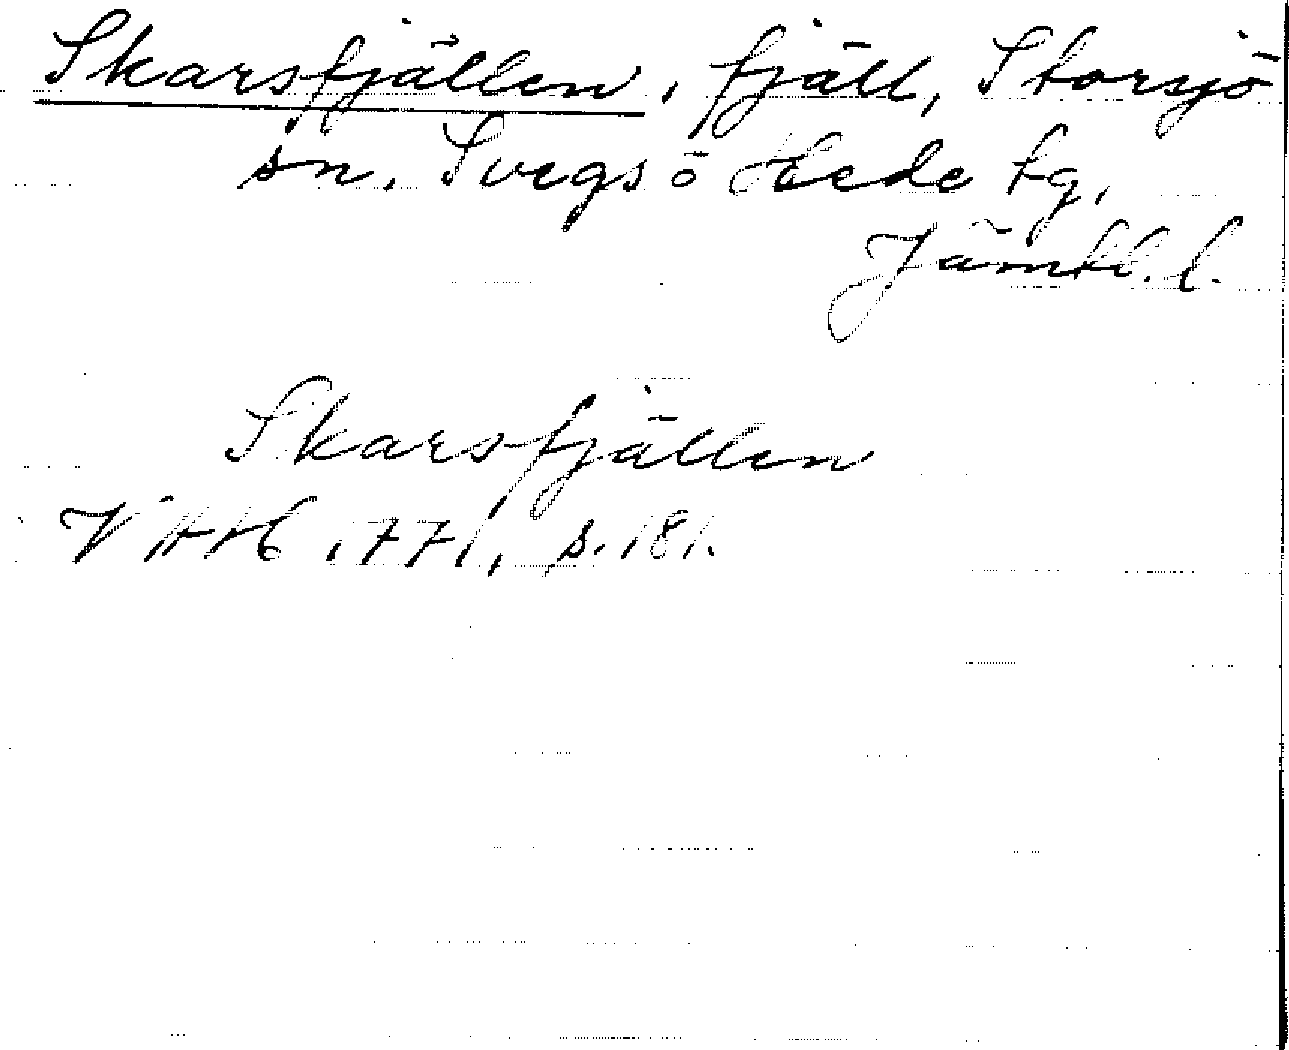 Skarsfjällen, fjäll, Storsjö
sn. Svegs o Hede tg,
Jämtl. l.
Skarsfjällen
VHAH 1771, s. 181.